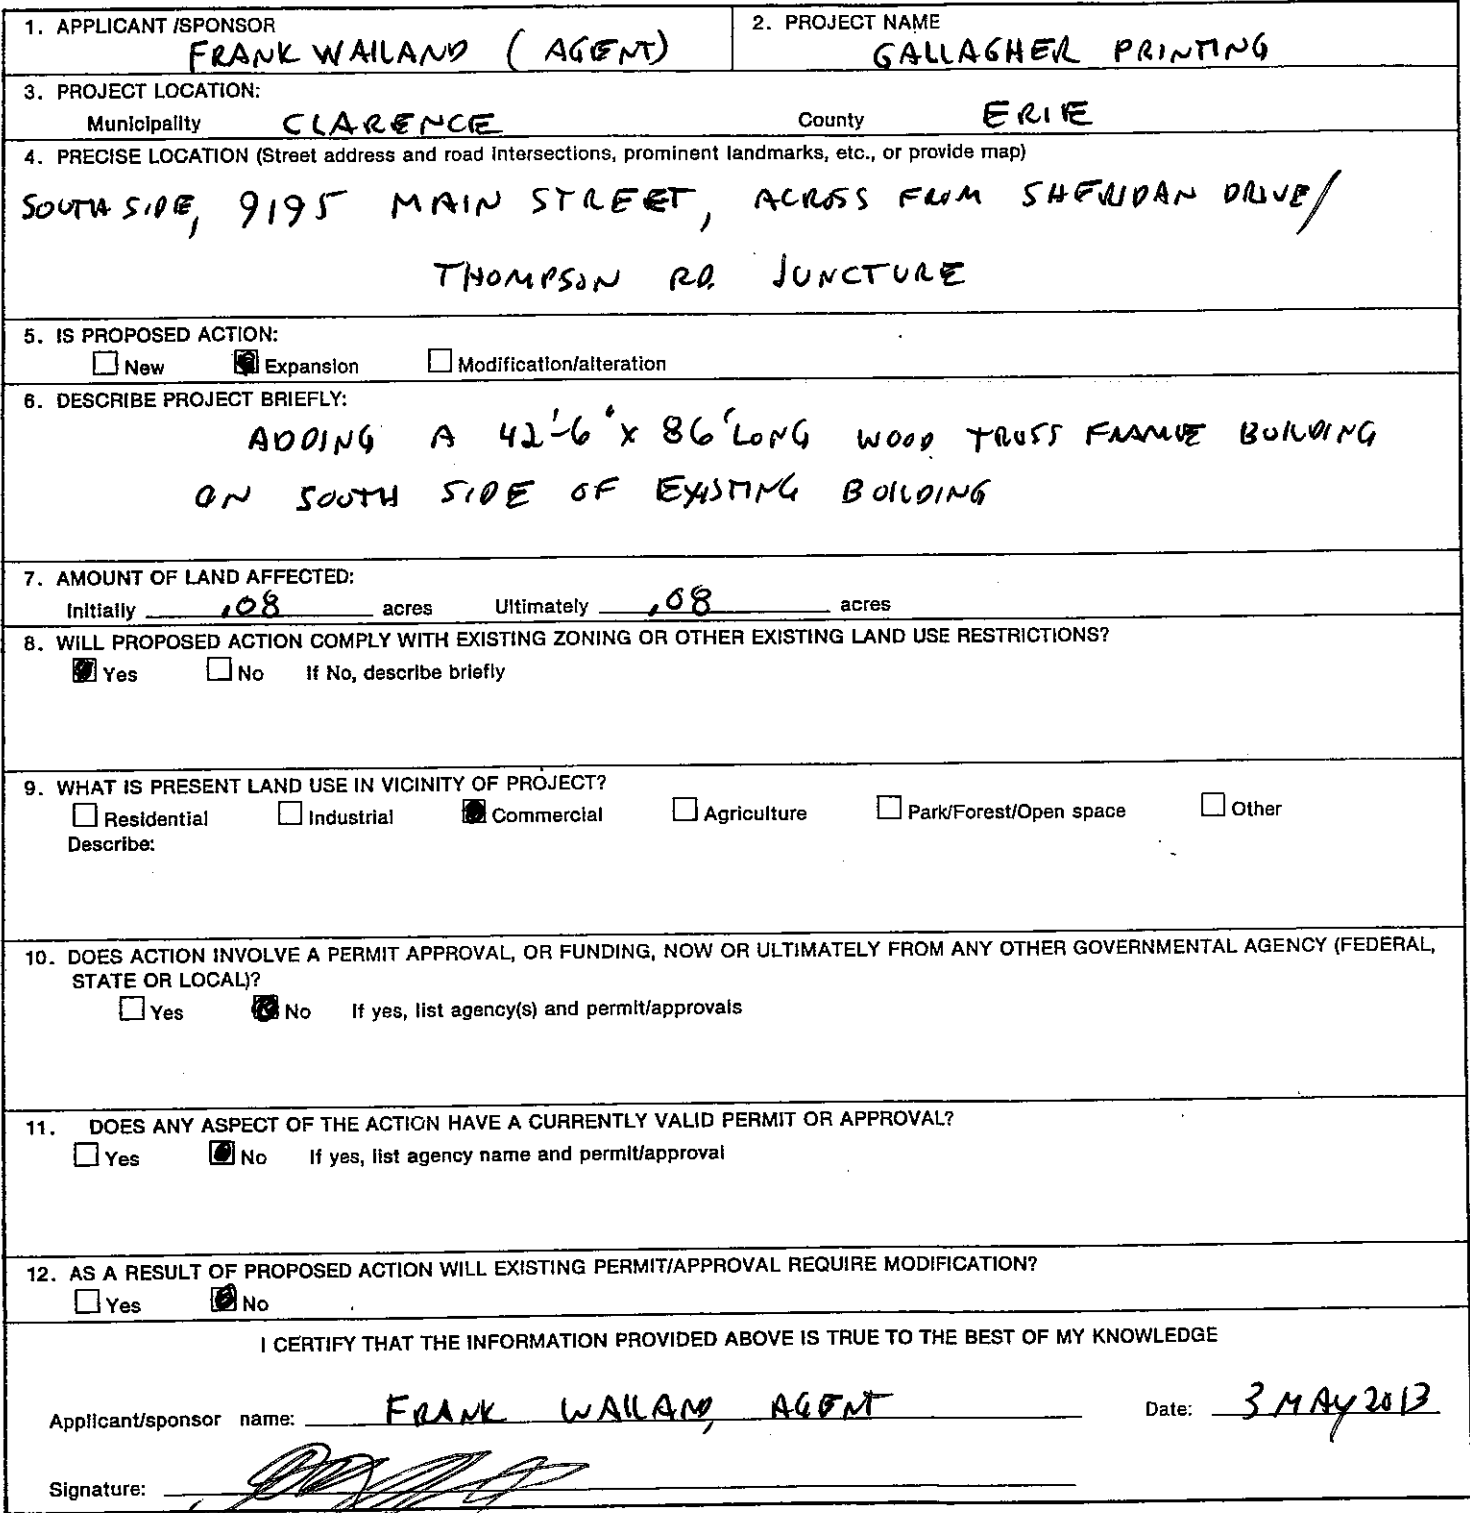 1. APPLICANT /SPONSOR
FRANK WAILAND (AGENT)
2. PROJECT NAME
GALLAGHER PRINTING
3. PROJECT LOCATION:
Municipality CLARENCE County ERIE
4. PRECISE LOCATION (Street address and road intersections, prominent landmarks, etc., or provide map)
SOUTH SIDE, 9195 MAIN STREET, ACROSS FROM SHERIDAN DRIVE/
THOMPSON RD. JUNCTURE
5. IS PROPOSED ACTION:
New Expansion Modification/alteration
6. DESCRIBE PROJECT BRIEFLY:
ADDING A 42'-6" x 86' LONG WOOD TRUSS FRAME BUILDING
ON SOUTH SIDE OF EXISTING BUILDING
7. AMOUNT OF LAND AFFECTED:
Initially .08 acres Ultimately .08 acres
8. WILL PROPOSED ACTION COMPLY WITH EXISTING ZONING OR OTHER EXISTING LAND USE RESTRICTIONS?
Yes No If No, describe briefly
9. WHAT IS PRESENT LAND USE IN VICINITY OF PROJECT?
Residential Industrial Commercial Agriculture Park/Forest/Open space Other
Describe:
10. DOES ACTION INVOLVE A PERMIT APPROVAL, OR FUNDING, NOW OR ULTIMATELY FROM ANY OTHER GOVERNMENTAL AGENCY (FEDERAL,
STATE OR LOCAL)?
Yes No If yes, list agency(s) and permit/approvals
11. DOES ANY ASPECT OF THE ACTION HAVE A CURRENTLY VALID PERMIT OR APPROVAL?
Yes No If yes, list agency name and permit/approval
12. AS A RESULT OF PROPOSED ACTION WILL EXISTING PERMIT/APPROVAL REQUIRE MODIFICATION?
Yes No
I CERTIFY THAT THE INFORMATION PROVIDED ABOVE IS TRUE TO THE BEST OF MY KNOWLEDGE
Applicant/sponsor name: FRANK WAILAND, AGENT Date: 3 MAY 2013
Signature: